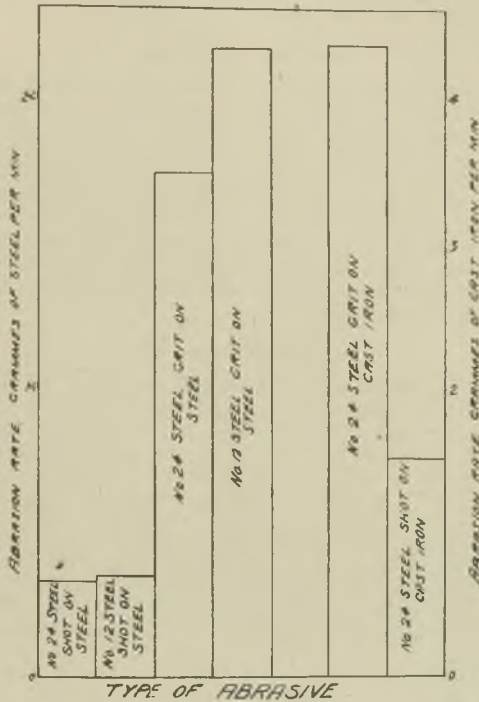 ABRASION RATE, GRAMMES OF STEEL PER MIN
No 24 STEEL
SHOT ON
STEEL
No. 12 STEEL
SHOT ON
STEEL
No 24 STEEL GRIT ON
STEEL
No 12 STEEL GRIT ON
STEEL
No 24 STEEL GRIT ON
CAST IRON
No 24 STEEL SHOT ON
CAST IRON
ABRASION RATE GRAMMES OF CAST IRON PER MIN
0
0
TYPE OF ABRASIVE